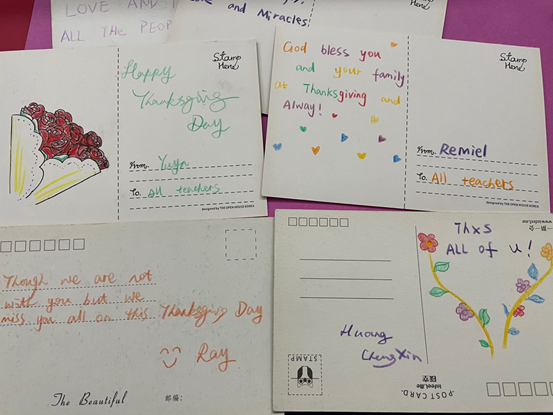 LOVE AND
ALL THE PEOP
and Miracles
Stamp
Here
Happy
Thanksgiving
Day
From:
To: All teachers
Stamp
Here
God bless you
and your family
at Thanksgiving and
Alway!
From: Remiel
To: All teachers
Though we are not
with you but we
miss you all on this Thanksgivig Day
Ray
The Beautiful
邮编:
Thxs
ALL of U!
Huang
ChengXin
STAMP
POST CARD